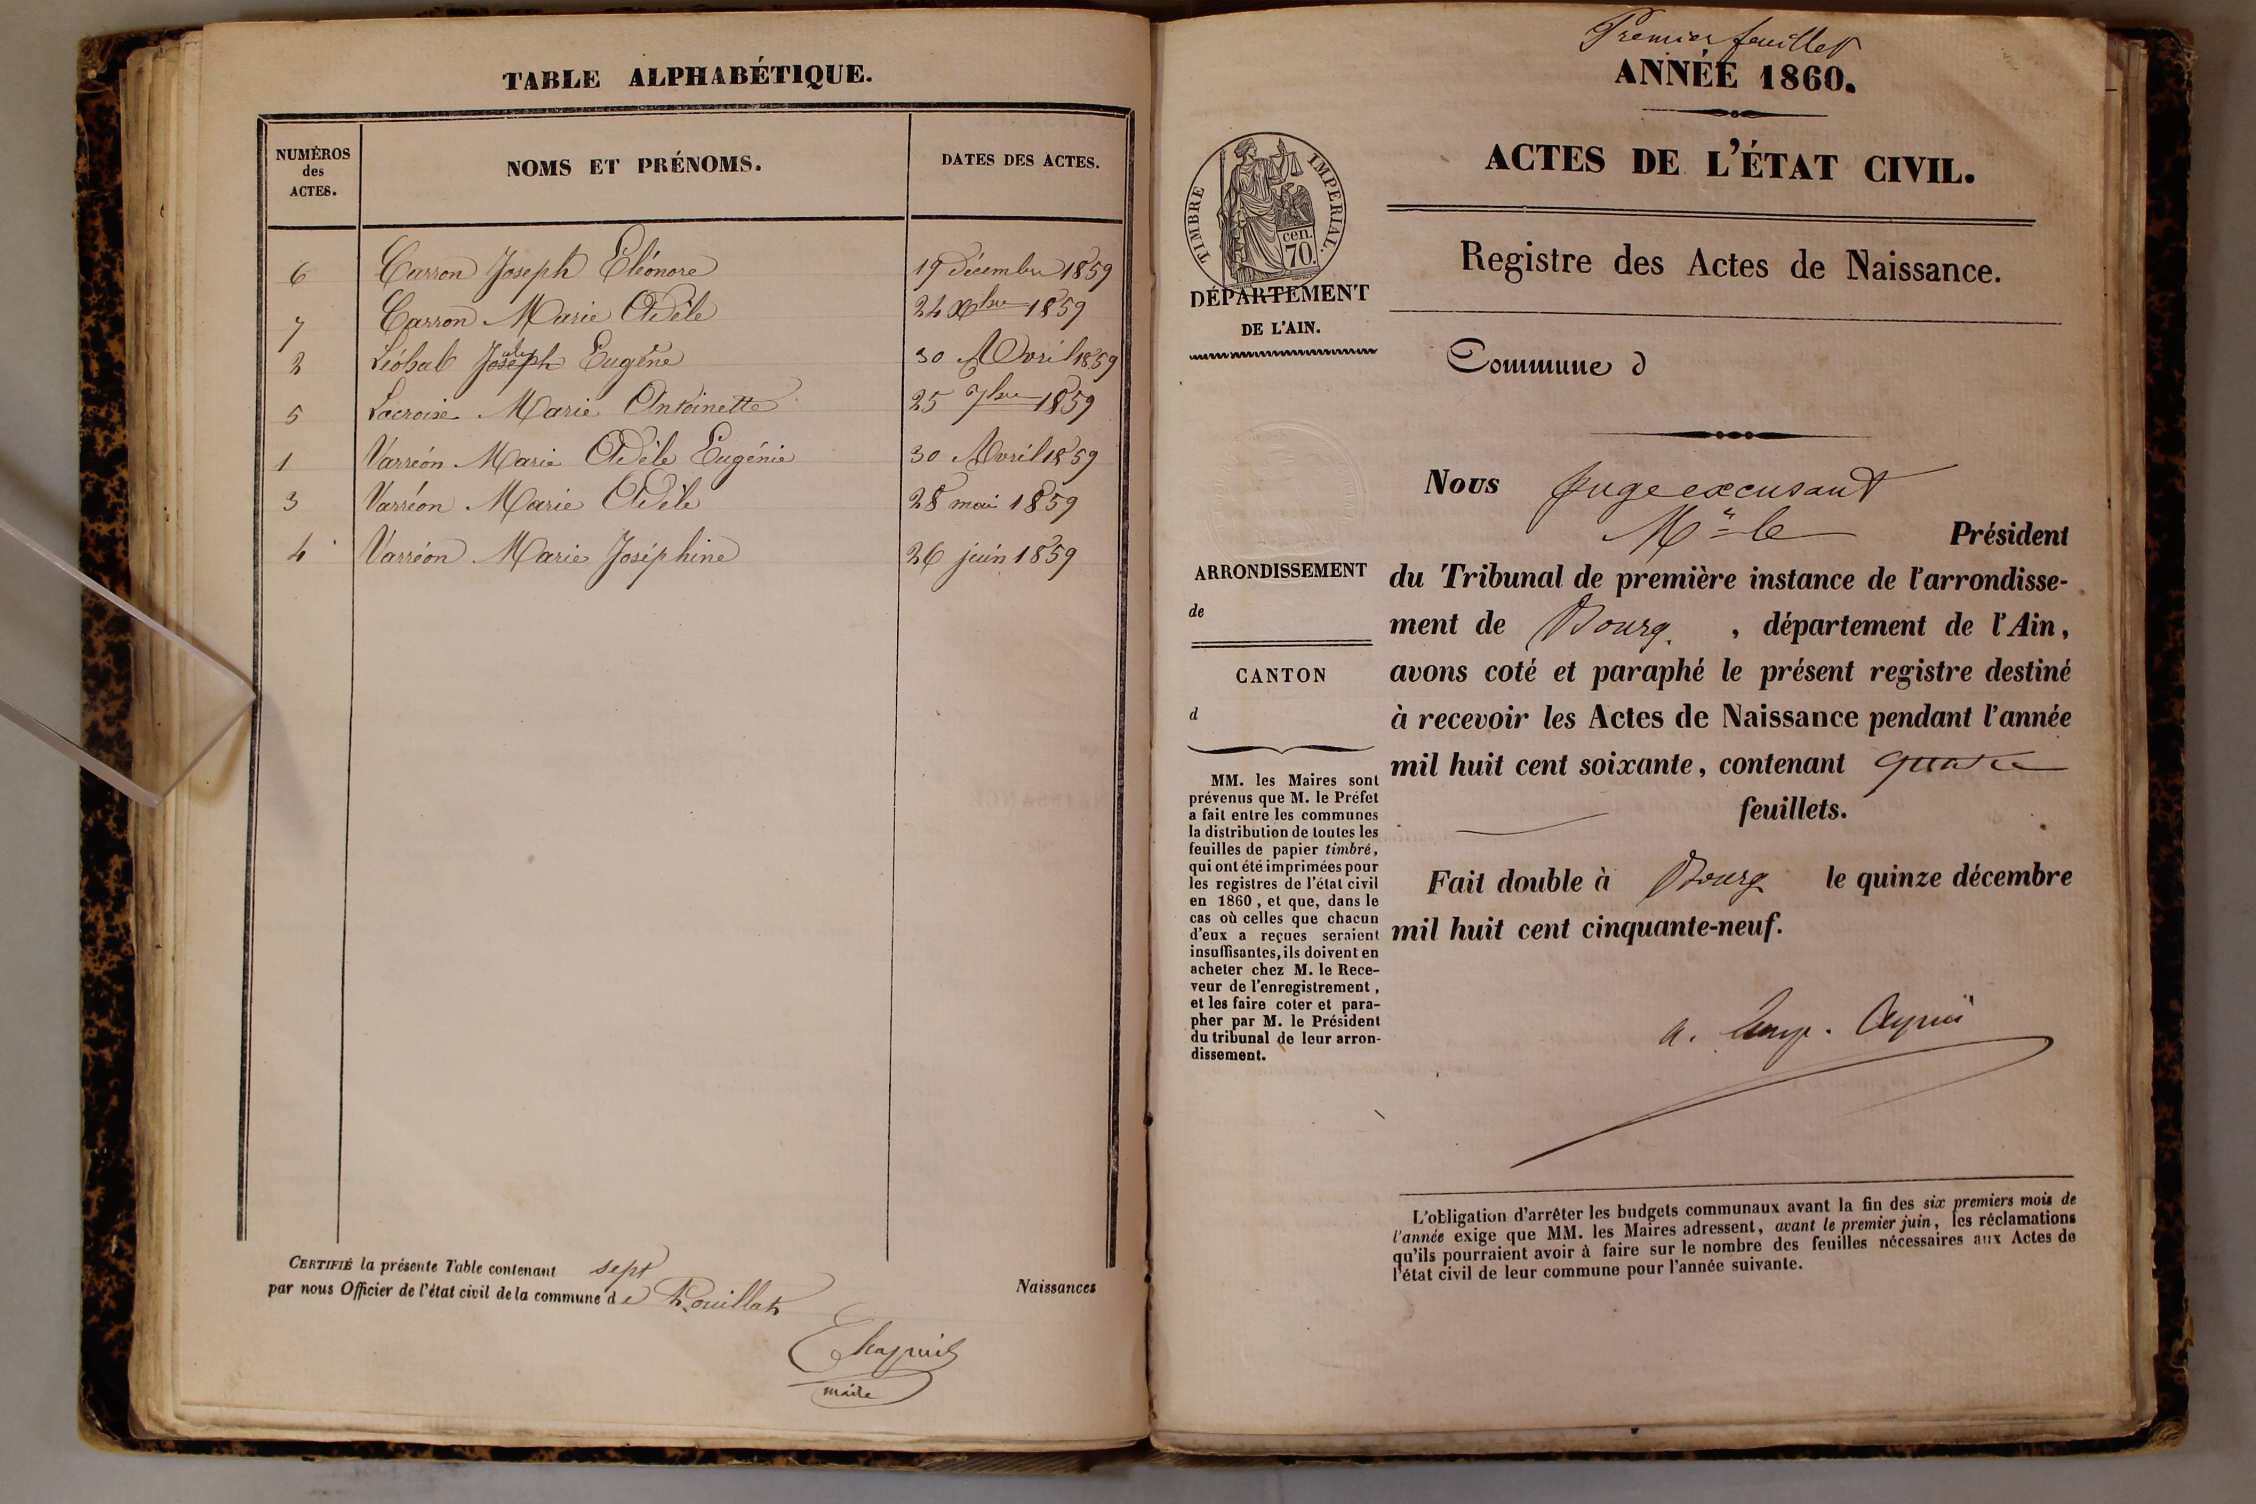 TABLE ALPHABÉTIQUE.
NUMÉROS des ACTES. NOMS ET PRÉNOMS. DATES DES ACTES.
6 Carron Joseph Eléonore 19 décembre 1859
7 Carron Marie Adèle 24 Xbre 1859
2 Léobal Joseph Eugène 30 Avril 1859
5 Lacroix Marie Antoinette 25 7bre 1859
1 Varréon Marie Adèle Eugénie 30 Avril 1859
3 Varréon Marie Adèle 28 mai 1859
4 Varréon Marie Joséphine 26 juin 1859
CERTIFIÉ la présente Table contenant sept Naissances
par nous Officier de l'état civil de la commune de Pouillat
Chapuis
maire
Premier feuillet
ANNÉE 1860.
ACTES DE L'ÉTAT CIVIL.
Registre des Actes de Naissance.
TIMBRE IMPÉRIAL.
cen.
70.
DÉPARTEMENT
DE L'AIN.
Commune d
ARRONDISSEMENT
de
CANTON
d
MM. les Maires sont
prévenus que M. le Préfet
a fait entre les communes
la distribution de toutes les
feuilles de papier timbré,
qui ont été imprimées pour
les registres de l'état civil
en 1860, et que, dans le
cas où celles que chacun
d'eux a reçues seraient
insuffisantes, ils doivent en
acheter chez M. le Rece-
veur de l'enregistrement,
et les faire coter et para-
pher par M. le Président
du tribunal de leur arron-
dissement.
Nous Juge excusant
Mr le Président
du Tribunal de première instance de l'arrondisse-
ment de Bourg, département de l'Ain,
avons coté et paraphé le présent registre destiné
à recevoir les Actes de Naissance pendant l'année
mil huit cent soixante, contenant quatre
feuillets.
Fait double à Bourg le quinze décembre
mil huit cent cinquante-neuf.
L'obligation d'arrêter les budgets communaux avant la fin des six premiers mois de
l'année exige que MM. les Maires adressent, avant le premier juin, les réclamations
qu'ils pourraient avoir à faire sur le nombre des feuilles nécessaires aux Actes de
l'état civil de leur commune pour l'année suivante.